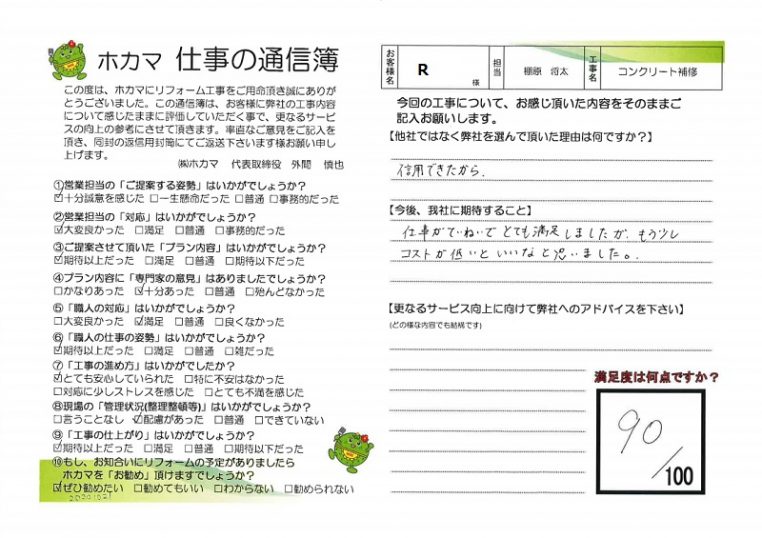 ホカマ 仕事の通信簿
この度は、ホカマにリフォーム工事をご用命頂き誠にありが
とうございました。この通信簿は、お客様に弊社の工事内容
について感じたままに評価していただく事で、更なるサービ
スの向上の参考にさせて頂きます。率直なご意見をご記入を
頂き、同封の返信用封筒にてご返送下さいます様お願い申し
上げます。
㈱ホカマ 代表取締役 外間 慎也
①営業担当の「ご提案する姿勢」はいかがでしょうか?
☑十分誠意を感じた □一生懸命だった □普通 □事務的だった
②営業担当の「対応」はいかがでしょうか?
☑大変良かった □満足 □普通 □事務的だった
③ご提案させて頂いた「プラン内容」はいかがでしょうか?
☑期待以上だった □満足 □普通 □期待以下だった
④プラン内容に「専門家の意見」はありましたでしょうか?
□かなりあった ☑十分あった □普通 □殆んどなかった
⑤「職人の対応」はいかがでしょうか?
□大変良かった ☑満足 □普通 □良くなかった
⑥「職人の仕事の姿勢」はいかがでしょうか?
☑期待以上だった □満足 □普通 □雑だった
⑦「工事の進め方」はいかがでしたか?
☑とても安心していられた □特に不安はなかった
□対応に少しストレスを感じた □とても不満を感じた
⑧現場の「管理状況(整理整頓等)」はいかがでしょうか?
□言うことなし ☑配慮があった □普通 □できていない
⑨「工事の仕上がり」はいかがでしょうか?
☑期待以上だった □満足 □普通 □期待以下だった
⑩もし、お知合いにリフォームの予定がありましたら
ホカマを「お勧め」頂けますでしょうか?
☑ぜひ勧めたい □勧めてもいい □わからない □勧められない
お客様名 R 様 担当 棚原 将太 工事名 コンクリート補修
今回の工事について、お感じ頂いた内容をそのままご
記入お願いします。
【他社ではなく弊社を選んで頂いた理由は何ですか?】
信用できたから.
【今後、我社に期待すること】
仕事がていねいでとても満足しましたが、もう少し
コストが低いといいなと思いました。
【更なるサービス向上に向けて弊社へのアドバイスを下さい】
(どの様な内容でも結構です)
満足度は何点ですか?
90
/100